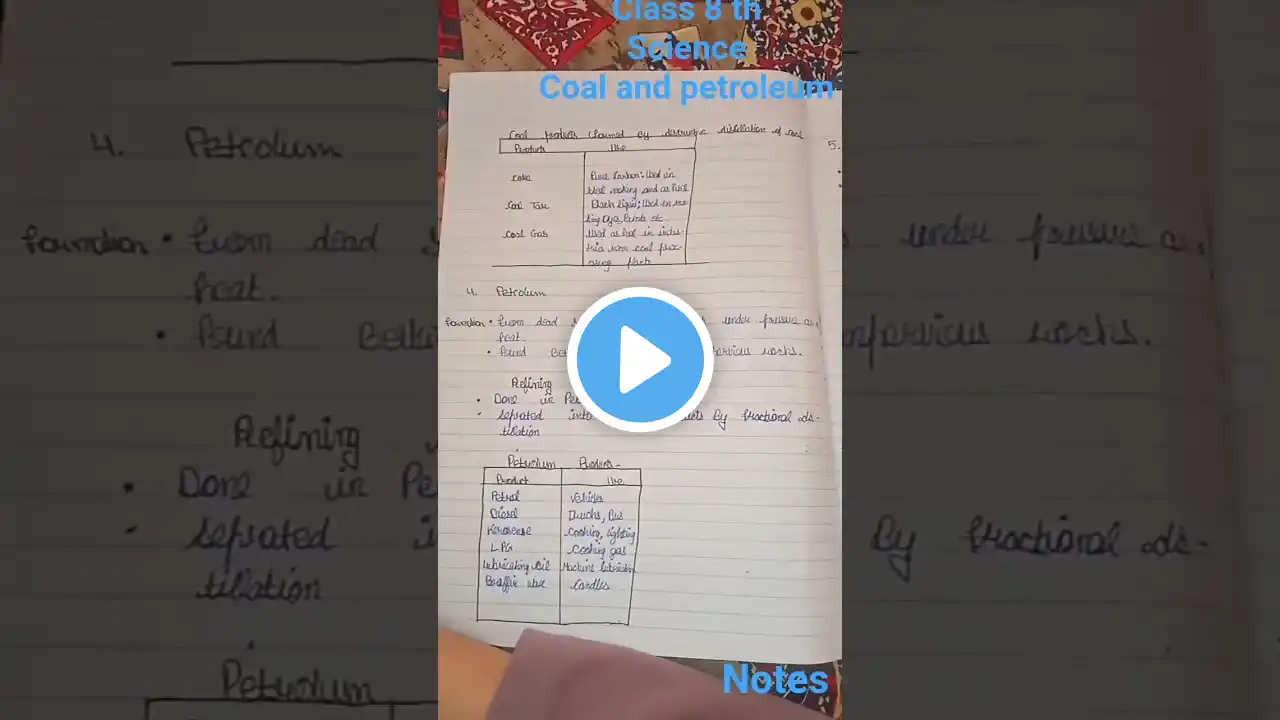 Class 8 th
Science
Coal and petroleum
Coal products (formed by distructive distillation of coal
Products Use
Coke Pure Carbon; Used in
steel making and as fuel
Coal Tar Black liquid; Used in ma-
king Dye, Paints etc.
Coal Gas Used as fuel in indus-
tries near coal proce-
ssing plants
5.
4. Petrolum
formation • From dead under pressure
heat.
• Found rocks.
Refining
• Done in
• seprated into by fractional dis-
tilation
Petrolum Products-
Product Use
Petrol Vehicles
Diesel Trucks, Bus
Kerosense Cooking, lighting
LPG Cooking gas
Lubricating oil Machine lubrication
wax Candles
Notes